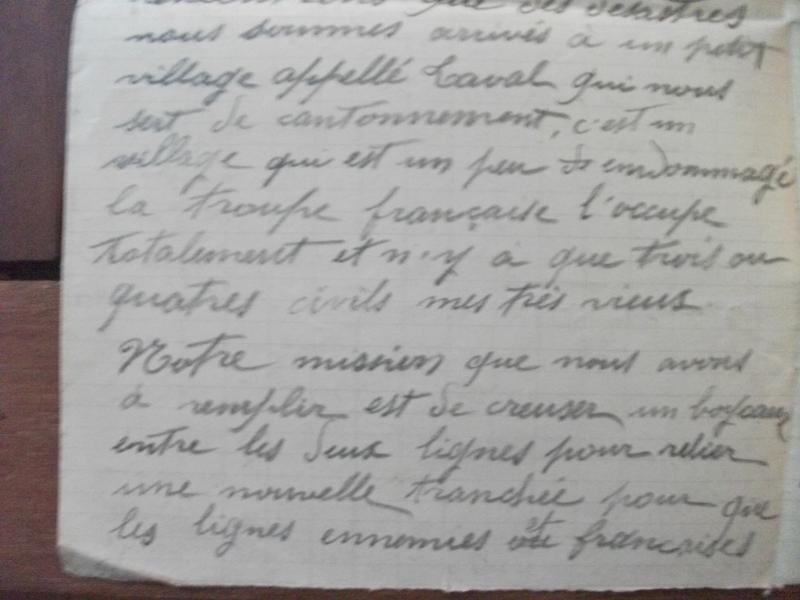 que des desastres
nous sommes arrivés à un petit
village appellé Laval qui nous
sert de cantonnement, c'est un
village qui est un peu endommagé
la troupe française l'occupe
totalement et n'y a que trois ou
quatres civils mes très vieux
Notre mission que nous avons
à remplir est de creuser un boyeaux
entre les deux lignes pour relier
une nouvelle tranchée pour que
les lignes ennemies et françaises